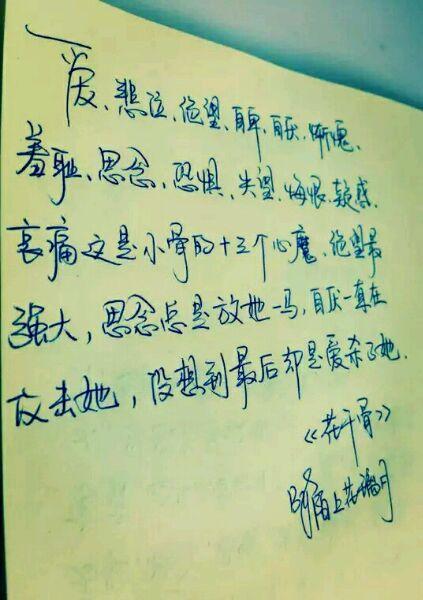 爱、悲泣、绝望、自卑、自厌、惭愧、
羞耻、思念、恐惧、失望、悔恨、疑惑、
哀痛这是小骨的十三个心魔、绝望最
强大，思念总是放她一马，自厌一直在
攻击她，没想到最后却是爱杀了她。
《花千骨》
陌上花